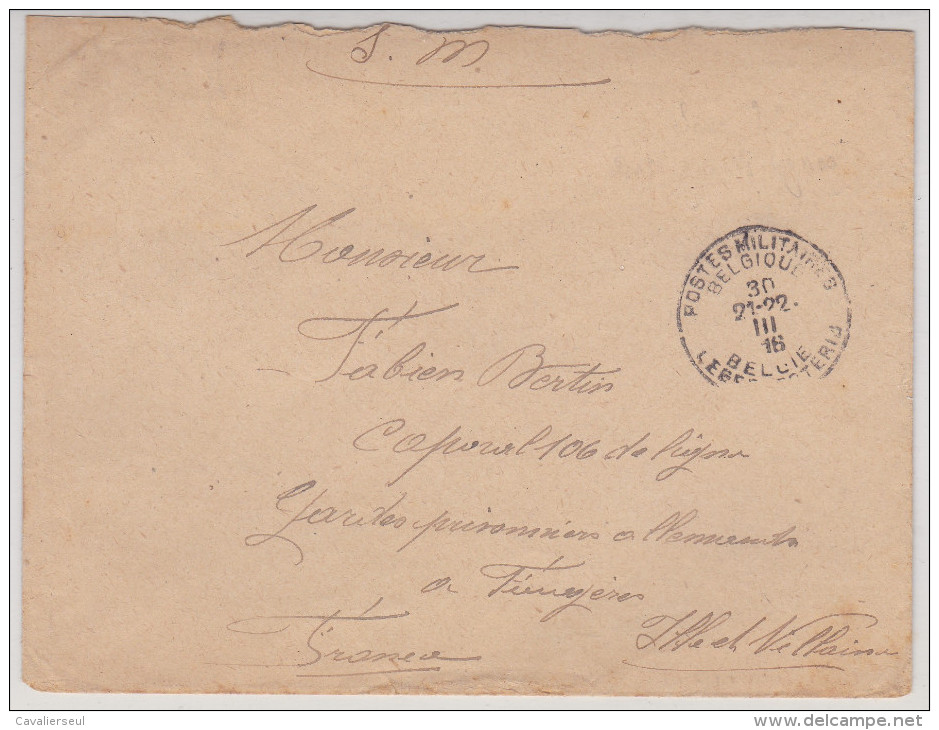 S. M.
Monsieur
Fabien Bertin
Caporal 106 de ligne
Gardes prisonniers allemands
a Fougères
France
Ille et Villaine
POSTES MILITAIRES
BELGIQUE
30
21-22
III
16
BELGIE
LEGERPOSTERIJ
Cavalierseul
delcampe.net